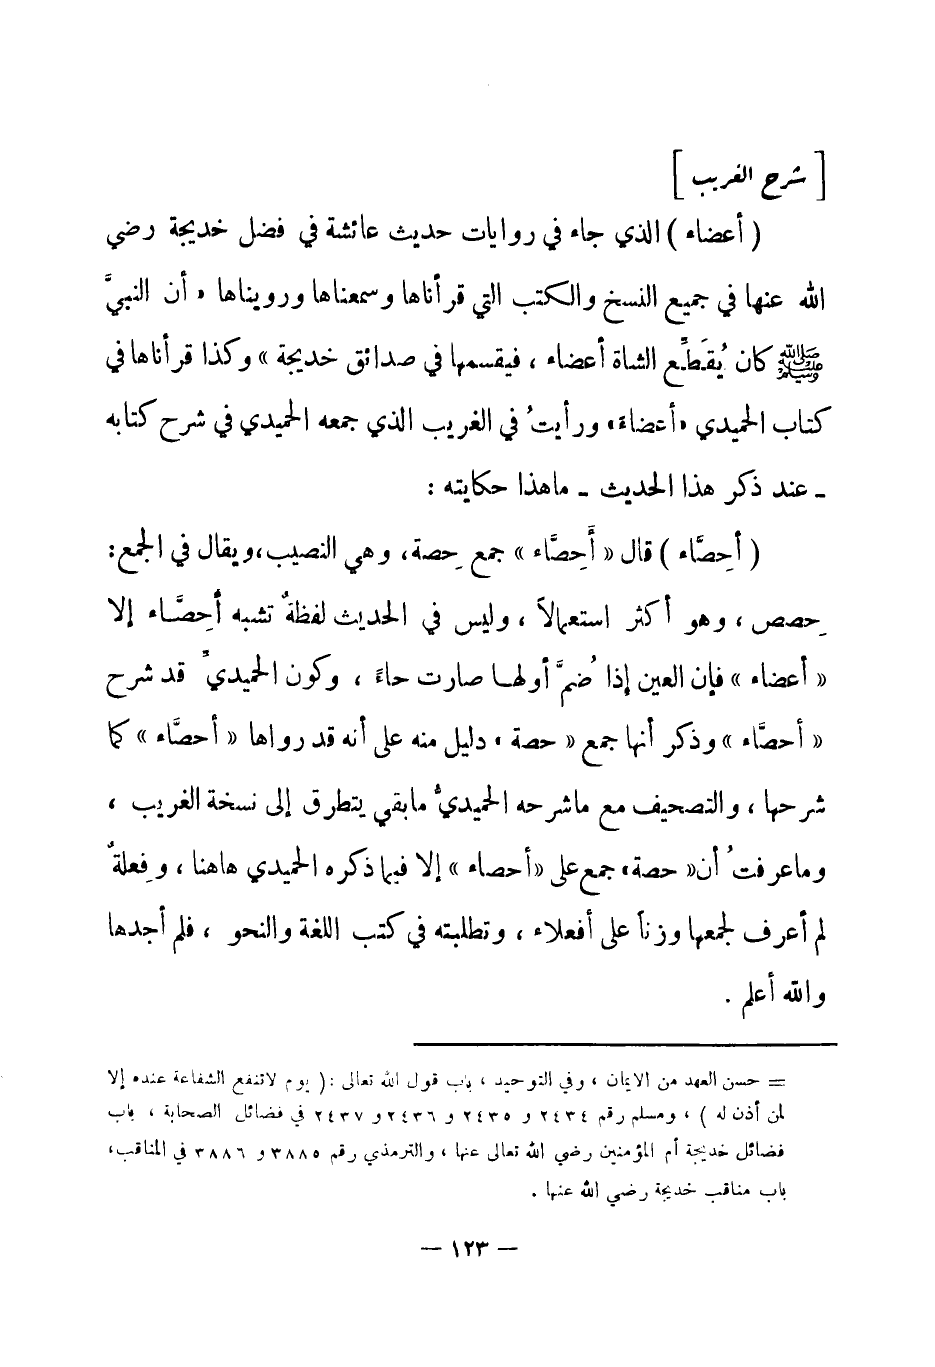 [ شرح الغريب ]
( أعضاء ) الذي جاء في روايات حديث عائشة في فضل خديجة رضي
الله عنها في جميع النسخ والكتب التي قرأناها وسمعناها ورويناها « أن النبيَّ
ﷺ كان يُقَطِّع الشاة أعضاء ، فيقسمها في صدائق خديجة » وكذا قرأناها في
كتاب الحميدي «أعضاء» ورأيتُ في الغريب الذي جمعه الحميدي في شرح كتابه
ـ عند ذكر هذا الحديث ـ ماهذا حكايته :
( أحِصَّاء ) قال « أَحِصَّاء » جمع حِصة، وهي النصيب،ويقال في الجمع:
حِصص ، وهو أكثر استعمالاً ، وليس في الحديث لفظةٌ تشبه أَحِصَّاء إلا
« أعضاء » فإن العين إذا ضُمَّ أولها صارت حاءً ، وكون الحميديِّ قد شرح
« أحصَّاء » وذكر أنها جمع « حصة » دليل منه على أنه قد رواها « أحصَّاء » كما
شرحها ، والتصحيف مع ماشرحه الحميديُّ مابقي يتطرق إلى نسخة الغريب ،
وماعرفتُ أن« حصة» جمع على «أحصاء » إلا فيما ذكره الحميدي هاهنا ، وفِعلةٌ
لم أعرف لجمعها وزناً على أفعلاء ، وتطلبته في كتب اللغة والنحو ، فلم أجدها
والله أعلم .
= حسن العهد من الايمان ، وفي التوحيد ، باب قول الله تعالى :( يوم لاتنفع الشفاعة عنده إلا
لمن أذن له ) ، ومسلم رقم ٢٤٣٤ و ٢٤٣٥ و ٢٤٣٦ و ٢٤٣٧ في فضائل الصحابة ، باب
فضائل خديجة أم المؤمنين رضي الله تعالى عنها ، والترمذي رقم ٣٨٨٥ و ٣٨٨٦ في المناقب،
باب مناقب خديجة رضي الله عنها .
— ١٢٣ —